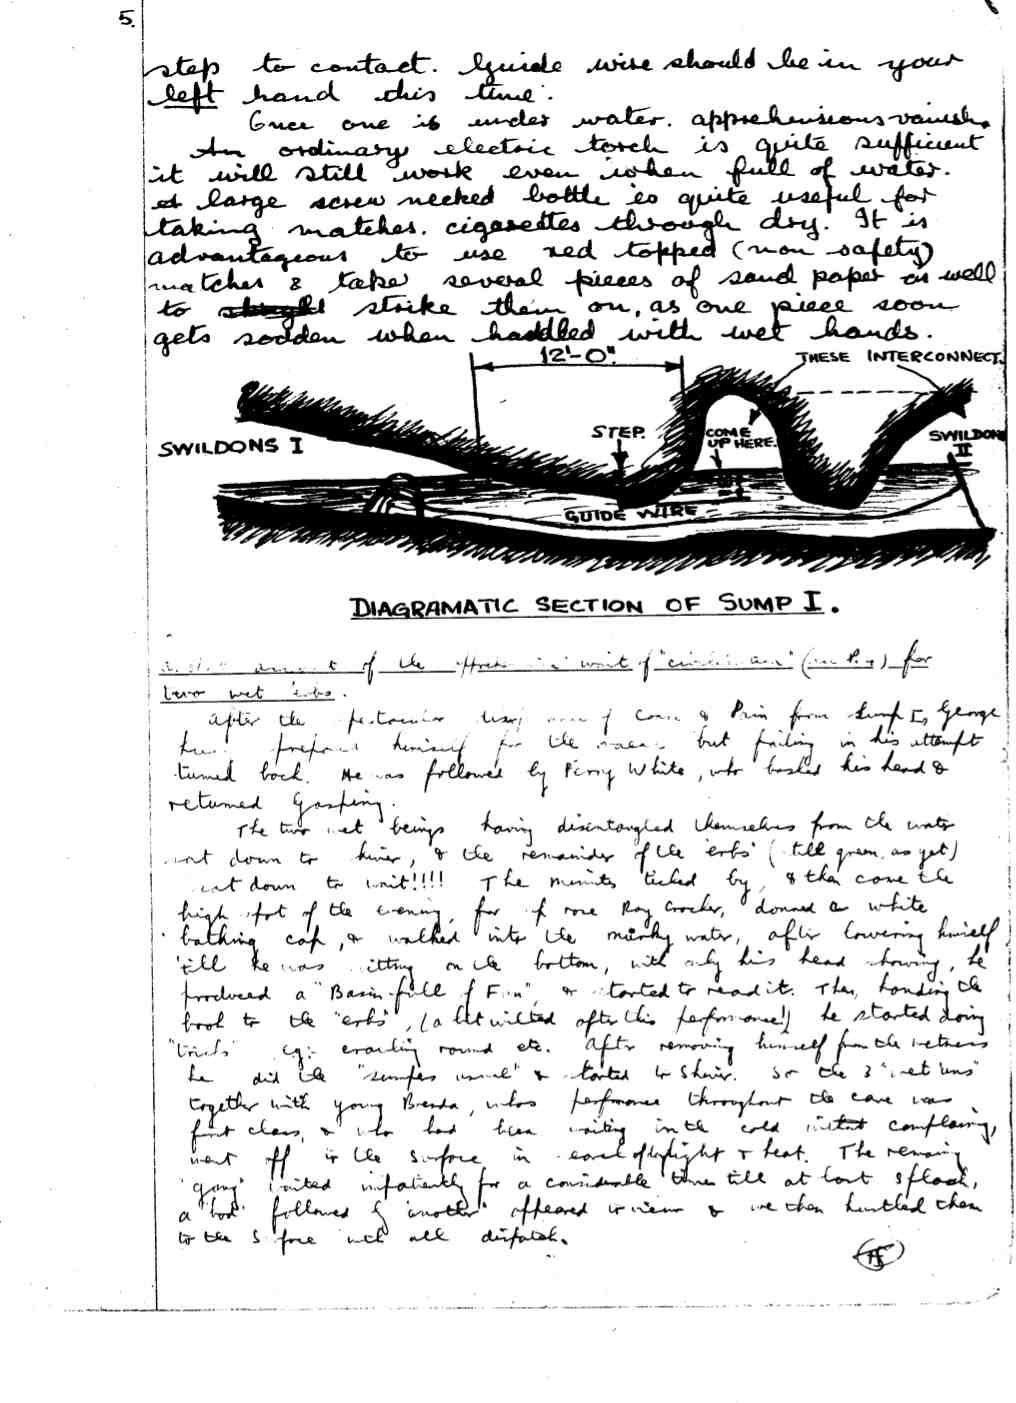 5.
step to contact. Guide wire should be in your
left hand this time.
Once one is under water. apprehensions vanish.
An ordinary electric torch is quite sufficient
it will still work even when full of water.
A large screw necked bottle is quite useful for
taking matches. cigarettes through dry. It is
advantageous to use red topped (non safety)
matches & take several pieces of sand paper as well
to strike them on, as one piece soon
gets sodden when handled with wet hands.
12'-0".
THESE INTERCONNECT.
SWILDONS I
STEP.
COME
UP HERE.
SWILDONS
II
GUIDE WIRE
DIAGRAMATIC SECTION OF SUMP I.
of the wait of (in Pig) for
two wet 'erbs.
After the of Coase & Prim from Sump I, George
prepared himself for the but failing in his attempt
turned back. He was followed by Perry White, who bashed his head &
returned Gasping.
The two wet beings having disentangled themselves from the water
went down to shiver, & the remainder of the 'erbs' (still green as yet)
sat down to wait!!!! The minutes ticked by, & then came the
high spot of the evening, for up rose Ray Crocker, donned a white
bathing cap, & walked into the murky water, after lowering himself
'till he was sitting on the bottom, with only his head showing, he
produced a "Basin full of Fun", & started to read it. Then, handing the
book to the "erbs", (a bit wilted after this performance!) he started doing
"tricks" eg:- crawling round etc. After removing himself from the wetness
he did the "sumpers usual" & started to Shiver. So the 3 "wet 'uns"
together with young Brenda, whos performance throughout the cave was
first class, & who had been waiting in the cold without complaining,
went off to the surface in search of daylight & heat. The remaining
'gang' waited impatiently for a considerable time till at last splash,
a 'bod' followed by 'another' appeared to view & we then hustled them
to the surface with all dispatch.